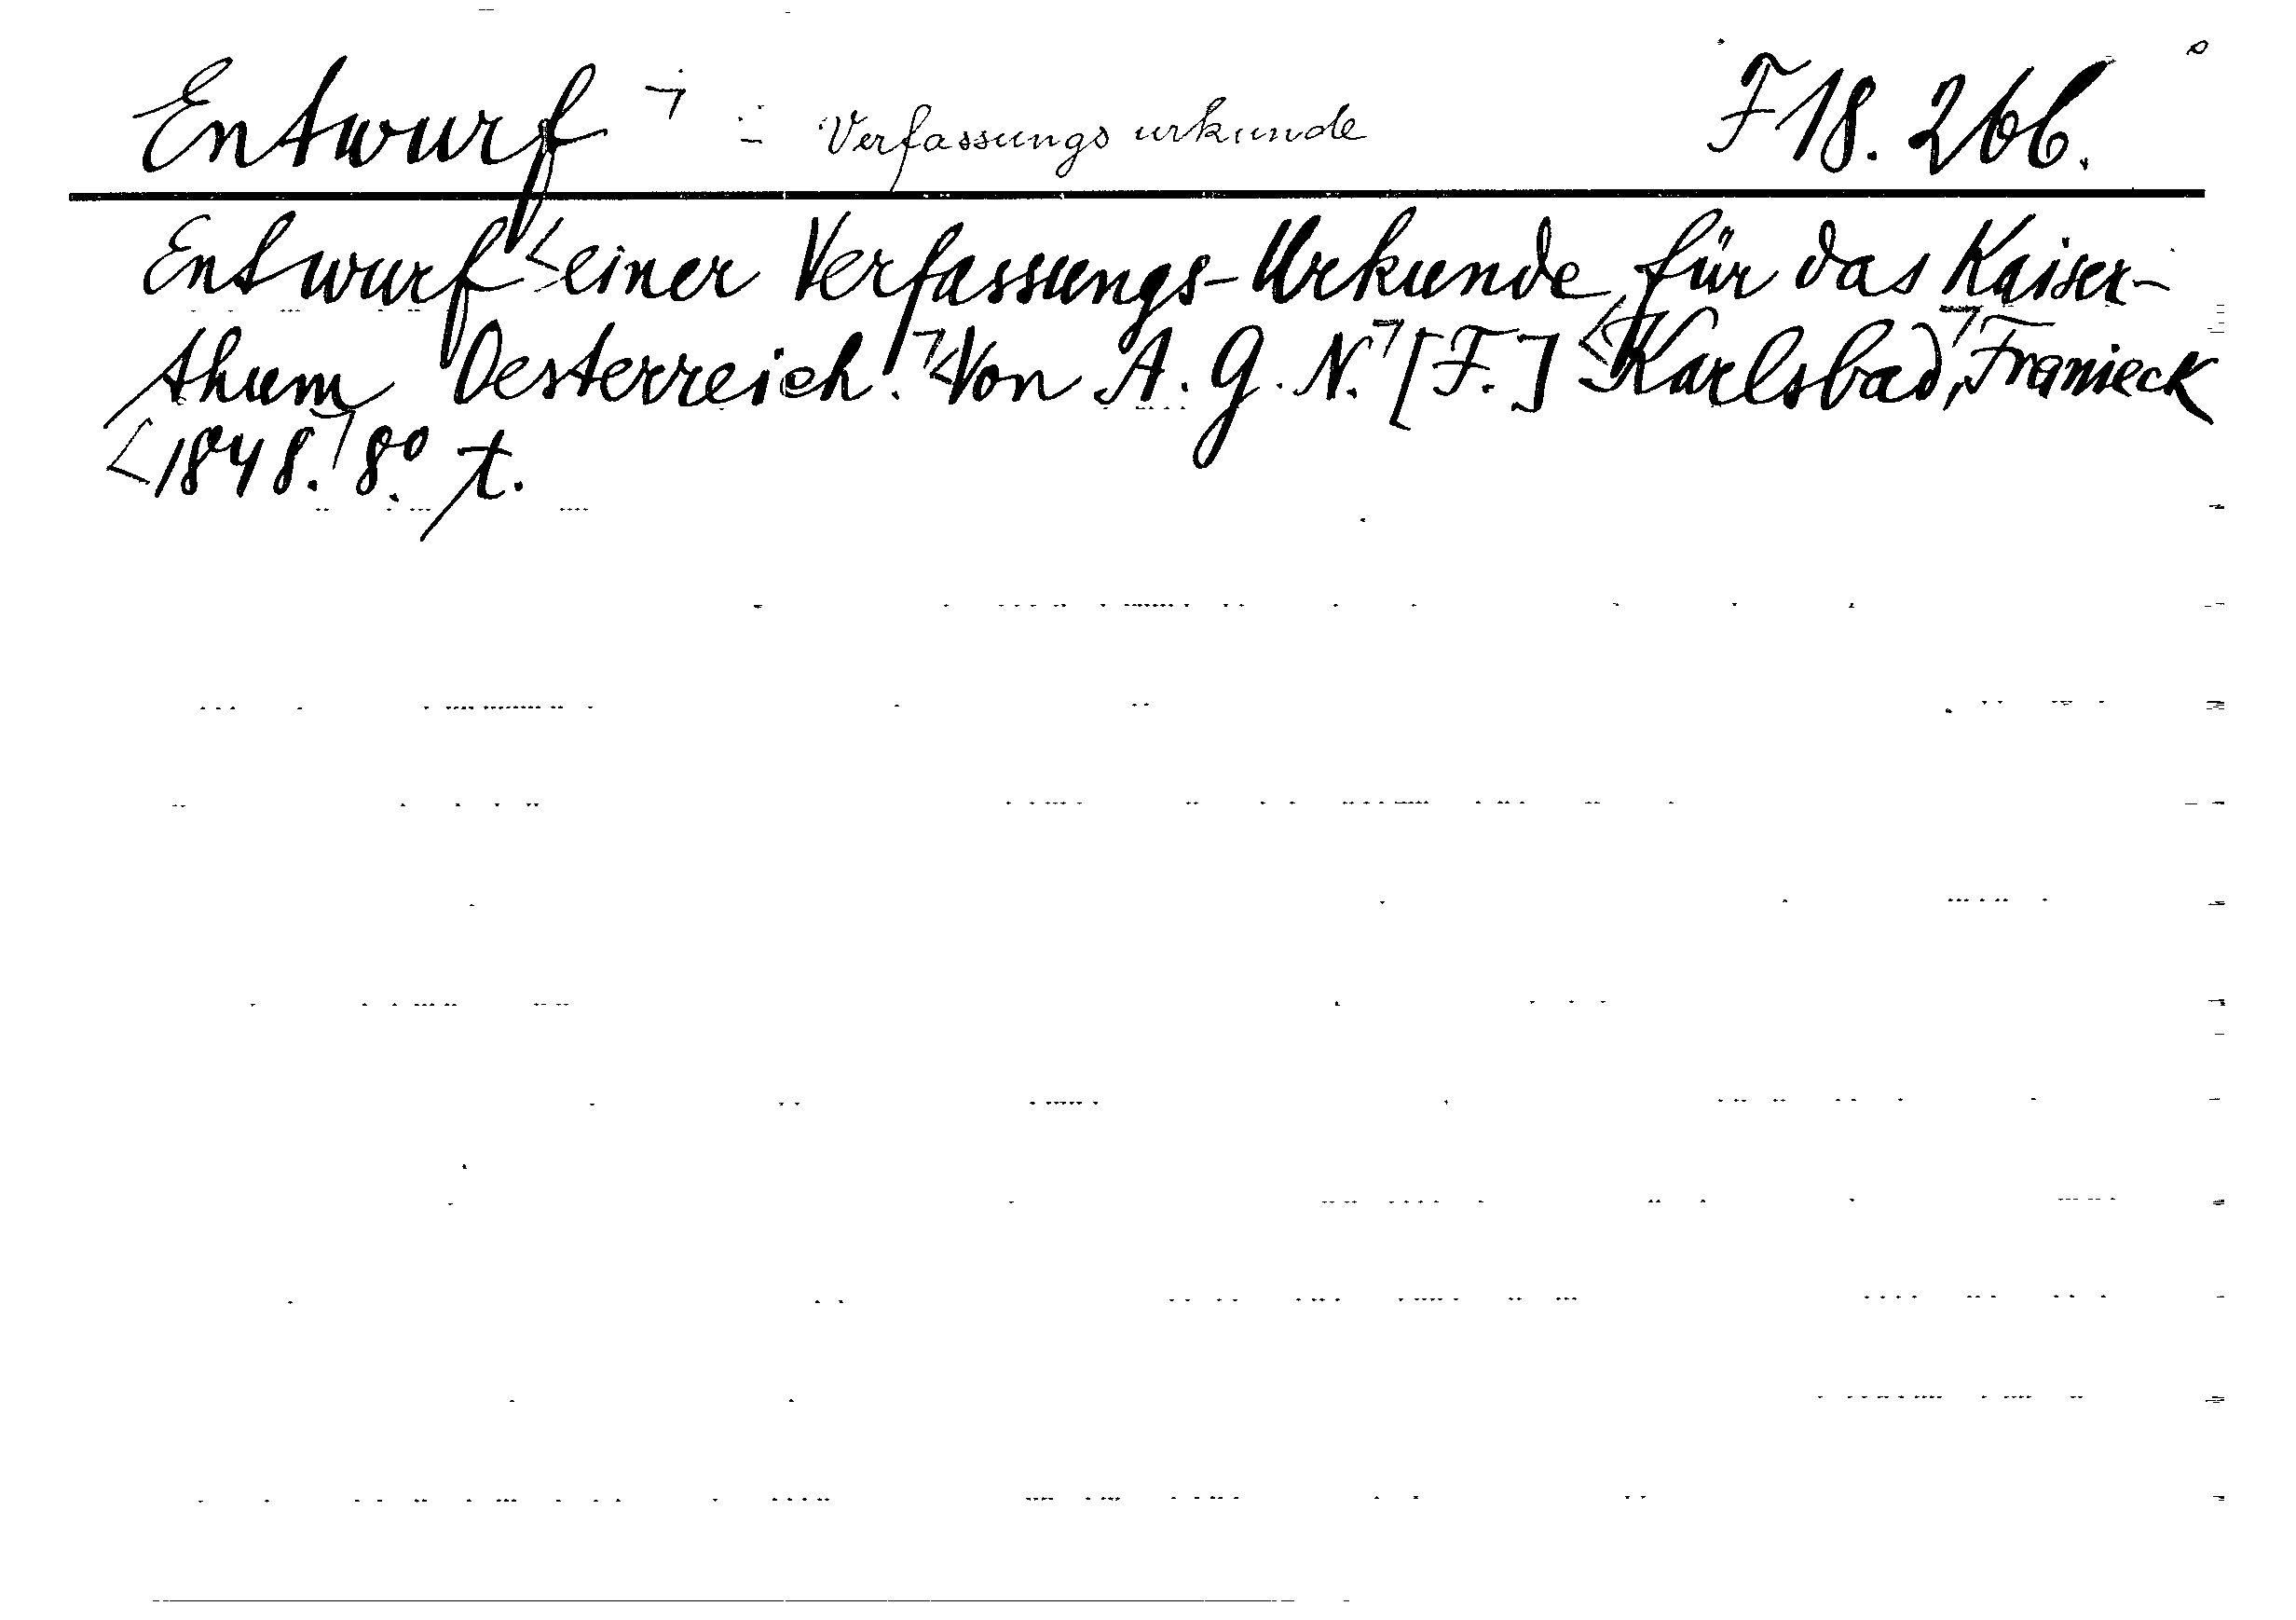 Entwurf ¬ = Verfassungs urkunde F 18. 266.
Entwurf <einer Verfassungs-Urkunde für das Kaiser-
thum Oesterreich.¬ <Von A. G. N.¬ [F.] <Karlsbad,¬ Franieck
<1848.¬ 8.° t.